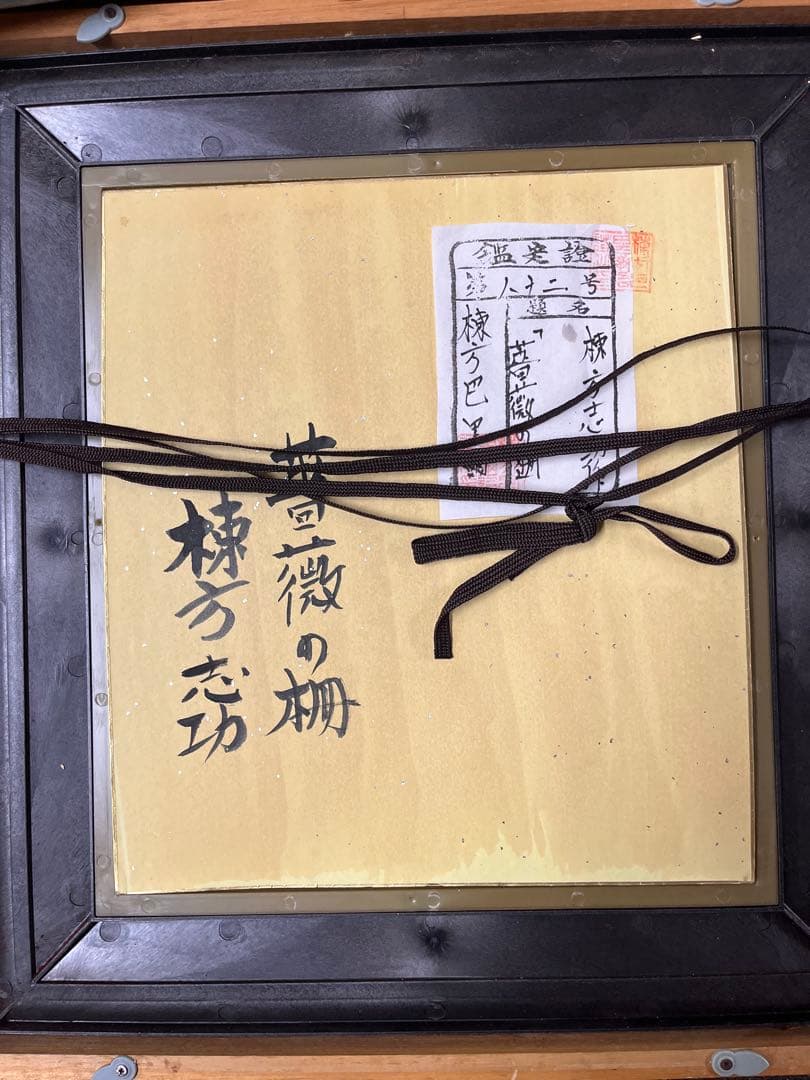 鑑定證
第八十二号
題名
棟方志功
「薔薇の柵
棟方巴里
薔薇の柵
棟方志功